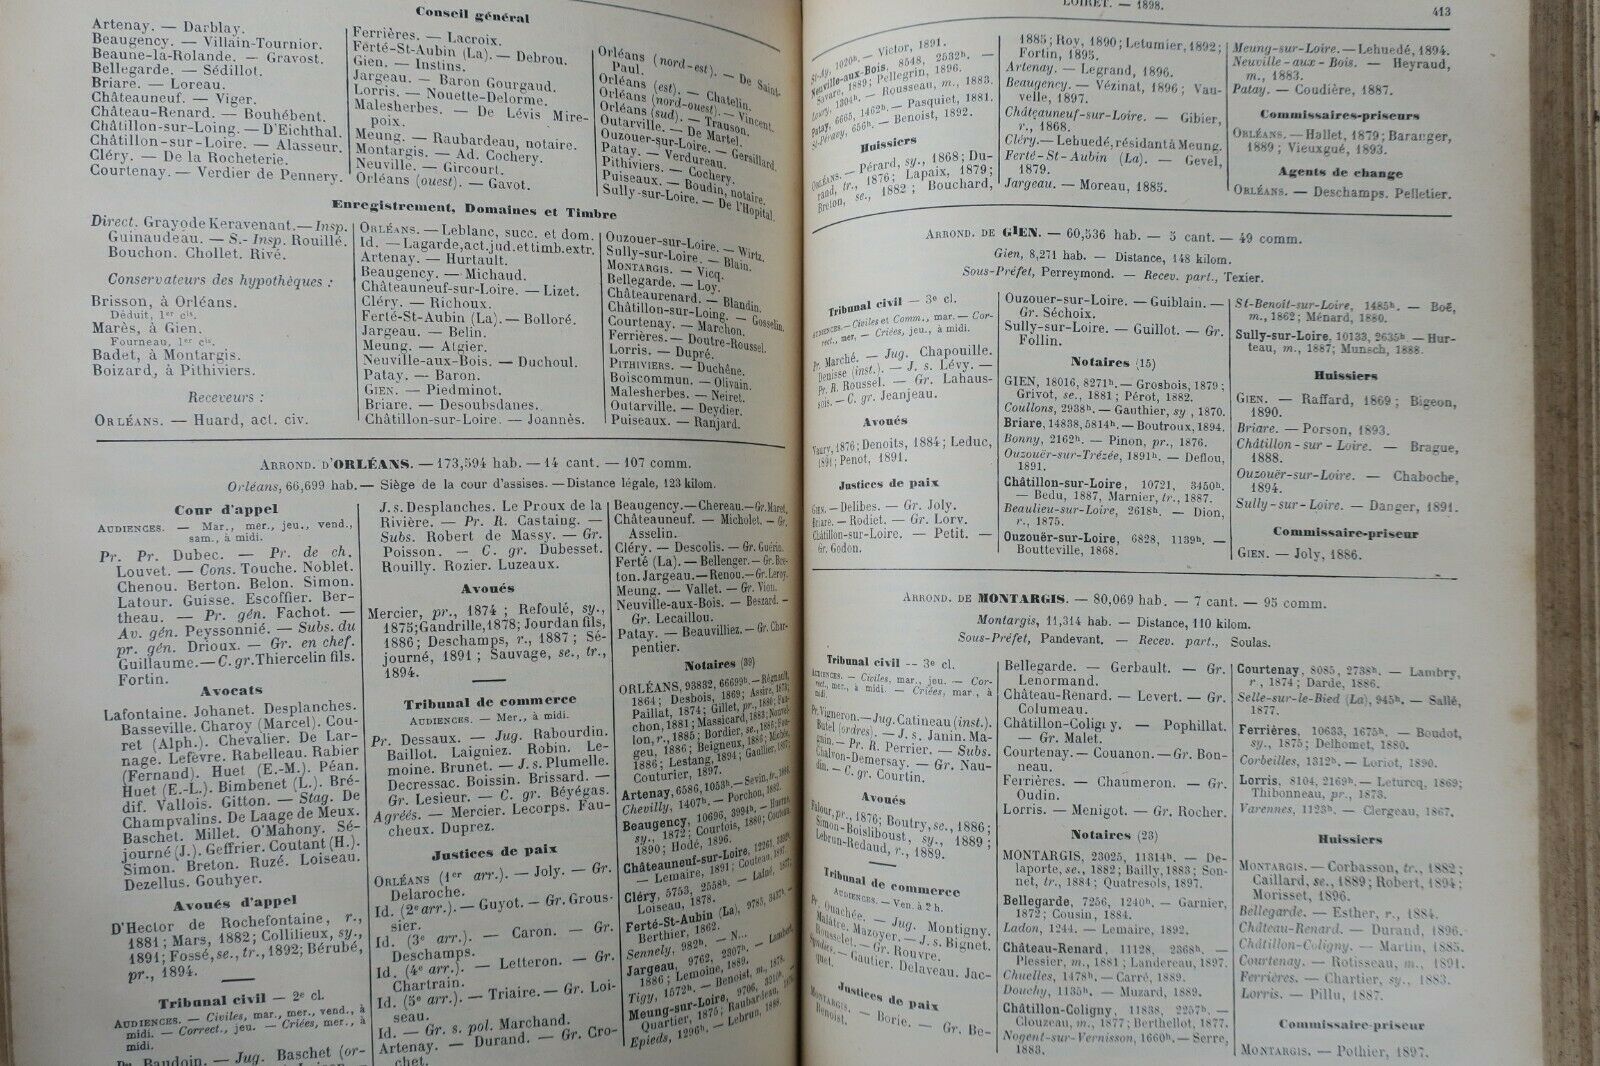 Conseil général
Artenay. — Darblay.
Beaugency. — Villain-Tournier.
Beaune-la-Rolande. — Gravost.
Bellegarde. — Sédillot.
Briare. — Loreau.
Châteauneuf. — Viger.
Château-Renard. — Bouhébent.
Châtillon-sur-Loing. — D'Eichthal.
Châtillon-sur-Loire. — Alasseur.
Cléry. — De la Rocheterie.
Courtenay. — Verdier de Pennery.
Ferrières. — Lacroix.
Ferté-St-Aubin (La). — Debrou.
Gien. — Instins.
Jargeau. — Baron Gourgaud.
Lorris. — Nouette-Delorme.
Malesherbes. — De Lévis Mire-
poix.
Meung. — Raubardeau, notaire.
Montargis. — Ad. Cochery.
Neuville. — Gircourt.
Orléans (ouest). — Gavot.
Orléans (nord-est). — De Saint-
Paul.
Orléans (est). — Chatelin.
Orléans (nord-ouest). — Vincent.
Orléans (sud). — Trauson.
Outarville. — De Martel.
Ouzouer-sur-Loire. — Gersillard.
Patay. — Verdureau.
Pithiviers. — Cochery.
Puiseaux. — Boudin, notaire.
Sully-sur-Loire. — De l'Hopital.
Enregistrement, Domaines et Timbre
Direct. Grayo de Keravenant. — Insp.
Guinaudeau. — S.-Insp. Rouillé.
Bouchon. Chollet. Rivé.
Conservateurs des hypothèques :
Brisson, à Orléans.
Déduit, 1er cis.
Marès, à Gien.
Fourneau, 1er cis.
Badet, à Montargis.
Boizard, à Pithiviers.
Receveurs :
ORLÉANS. — Huard, act. civ.
ORLÉANS. — Leblanc, succ. et dom.
Id. — Lagarde, act. jud. et timb. extr.
Artenay. — Hurtault.
Beaugency. — Michaud.
Châteauneuf-sur-Loire. — Lizet.
Cléry. — Richoux.
Ferté-St-Aubin (La). — Bolloré.
Jargeau. — Belin.
Meung. — Algier.
Neuville-aux-Bois. — Duchoul.
Patay. — Baron.
GIEN. — Piedminot.
Briare. — Desoubsdanes.
Châtillon-sur-Loire. — Joannès.
Ouzouer-sur-Loire. — Wirtz.
Sully-sur-Loire. — Blain.
MONTARGIS. — Vicq.
Bellegarde. — Loy.
Châteaurenard. — Blandin.
Châtillon-sur-Loing. — Gosselin.
Courtenay. — Marchon.
Ferrières. — Doutre-Roussel.
Lorris. — Dupré.
PITHIVIERS. — Duchêne.
Boiscommun. — Olivain.
Malesherbes. — Neiret.
Outarville. — Deydier.
Puiseaux. — Ranjard.
ARROND. D'ORLÉANS. — 173,594 hab. — 14 cant. — 107 comm.
Orléans, 66,699 hab. — Siège de la cour d'assises. — Distance légale, 123 kilom.
Cour d'appel
AUDIENCES. — Mar., mer., jeu., vend.,
sam., à midi.
Pr. Pr. Dubec. — Pr. de ch.
Louvet. — Cons. Touche. Noblet.
Chenou. Berton. Belon. Simon.
Latour. Guisse. Escoffier. Ber-
theau. — Pr. gén. Fachot. —
Av. gén. Peyssonnié. — Subs. du
pr. gén. Drioux. — Gr. en chef.
Guillaume. — C. gr. Thiercelin fils.
Fortin.
Avocats
Lafontaine. Johanet. Desplanches.
Basseville. Charoy (Marcel). Cou-
ret (Alph.). Chevalier. De Lar-
nage. Lefèvre. Rabelleau. Rabier
(Fernand). Huet (E.-M.). Péan.
Huet (E.-L.). Bimbenet (L.). Bré-
dif. Vallois. Gitton. — Stag. De
Champvalins. De Laage de Meux.
Baschet. Millet. O'Mahony. Sé-
journé (J.). Geffrier. Coutant (H.).
Simon. Breton. Ruzé. Loiseau.
Dezellus. Gouhyer.
Avoués d'appel
D'Hector de Rochefontaine, r.,
1881; Mars, 1882; Collilieux, sy.,
1891; Fossé, se., tr., 1892; Bérubé,
pr., 1894.
Tribunal civil — 2e cl.
AUDIENCES. — Civiles, mar., mer., vend., à
midi. — Correct., jeu. — Criées, mer., à
midi.
Baudoin. — Jug. Baschet (or-
J. s. Desplanches. Le Proux de la
Rivière. — Pr. R. Castaing. —
Subs. Robert de Massy. — Gr.
Poisson. — C. gr. Dubesset.
Rouilly. Rozier. Luzeaux.
Avoués
Mercier, pr., 1874; Refoulé, sy.,
1875; Gandrille, 1878; Jourdan fils,
1886; Deschamps, r., 1887; Sé-
journé, 1891; Sauvage, se., tr.,
1894.
Tribunal de commerce
AUDIENCES. — Mer., à midi.
Pr. Dessaux. — Jug. Rabourdin.
Baillot. Laigniez. Robin. Le-
moine. Brunet. — J. s. Plumelle.
Decressac. Boissin. Brissard. —
Gr. Lesieur. — C. gr. Béyégas.
Agréés. — Mercier. Lecorps. Fau-
cheux. Duprez.
Justices de paix
ORLÉANS (1er arr.). — Joly. — Gr.
Delaroche.
Id. (2e arr.). — Guyot. — Gr. Grous-
sier.
Id. (3e arr.). — Caron. — Gr.
Deschamps.
Id. (4e arr.). — Letteron. — Gr.
Chartrain.
Id. (5e arr.). — Triaire. — Gr. Loi-
seau.
Id. — Gr. s. pol. Marchand.
Artenay. — Durand. — Gr. Cro-
chet.
Beaugency. — Chereau. — Gr. Maret.
Châteauneuf. — Micholet. — Gr.
Asselin.
Cléry. — Descolis. — Gr. Guérin.
Ferté (La). — Bellenger. — Gr. Bre-
ton. Jargeau. — Renou. — Gr. Leroy.
Meung. — Vallet. — Gr. Viou.
Neuville-aux-Bois. — Beszard. —
Gr. Lecaillou.
Patay. — Beauvilliez. — Gr. Char-
pentier.
Notaires (39)
ORLÉANS, 93832, 66699h. — Régnault,
1864; Desbois, 1869; Assire, 1873;
Paillat, 1874; Gillet, pr., 1880; Fau-
chon, 1881; Massicard, 1883; Nouvel-
lon, r., 1885; Bordier, se., 1886;
geu, 1886; Beigneux, 1886; Michée,
1886; Lestang, 1894; Gaullier, 1897;
Couturier, 1897.
Artenay, 6586, 1053h. — Sevin, tr., 1884.
Chevilly, 1407h. — Porchon, 1882.
Beaugency, 10696, 3994h. —
sy., 1872; Courtois, 1880; Couteau,
1890; Hodé, 1896.
Châteauneuf-sur-Loire, 12261,
— Lemaire, 1891; Couteau, 1897.
Cléry, 5753, 2558h. — Lainé, 1877;
Loiseau, 1878.
Ferté-St-Aubin (La), 9785, 3437h. —
Berthier, 1862.
Sennely, 982h. — N...
Jargeau, 9762, 2307h. — Lambert,
1886; Lemoine, 1889.
Tigy, 1572h. — Benoist, m., 1878.
Meung-sur-Loire, 9706, 3210h. —
Quartier, 1875; Raubardeau,
Epieds, 1296h. — Lebrun, 1888.
LOIRET. — 1898.
413
St-Ay, 1020h. — Victor, 1891.
Neuville-aux-Bois, 8548, 2532h. —
Savare, 1889; Pellegrin, 1896.
Loury, 1304h. — Rousseau, m., 1883.
Patay, 6665, 1462h. — Pasquiet, 1881.
St-Péravy, 656h. — Benoist, 1892.
Huissiers
ORLÉANS. — Pérard, sy., 1868; Du-
rand, tr., 1876; Lapaix, 1879;
Breton, se., 1882; Bouchard,
1885; Roy, 1890; Letumier, 1892;
Fortin, 1895.
Artenay. — Legrand, 1896.
Beaugency. — Vézinat, 1896; Vau-
velle, 1897.
Châteauneuf-sur-Loire. — Gibier,
r., 1868.
Cléry. — Lehuedé, résidant à Meung.
Ferté-St-Aubin (La). — Gevel,
1879.
Jargeau. — Moreau, 1885.
Meung-sur-Loire. — Lehuedé, 1894.
Neuville-aux-Bois. — Heyraud,
m., 1883.
Patay. — Coudière, 1887.
Commissaires-priseurs
ORLÉANS. — Hallet, 1879; Baranger,
1889; Vieuxgué, 1893.
Agents de change
ORLÉANS. — Deschamps. Pelletier.
ARROND. DE GIEN. — 60,536 hab. — 5 cant. — 49 comm.
Gien, 8,271 hab. — Distance, 148 kilom.
Sous-Préfet, Perreymond. — Recev. part., Texier.
Tribunal civil — 3e cl.
AUDIENCES. — Civiles et Comm., mar. — Cor-
rect., mer. — Criées, jeu., à midi.
Pr. Marché. — Jug. Chapouille.
Denisse (inst.). — J. s. Lévy. —
Pr. R. Roussel. — Gr. Lahaus-
sois. — C. gr. Jeanjeau.
Avoués
Vaury, 1876; Denoits, 1884; Leduc,
1891; Penot, 1891.
Justices de paix
GIEN. — Delibes. — Gr. Joly.
Briare. — Rodiet. — Gr. Lorv.
Châtillon-sur-Loire. — Petit. —
Gr. Godon.
Ouzouer-sur-Loire. — Guiblain. —
Gr. Séchoix.
Sully-sur-Loire. — Guillot. — Gr.
Follin.
Notaires (15)
GIEN, 18016, 8271h. — Grosbois, 1879;
Grivot, se., 1881; Pérot, 1882.
Coullons, 2938h. — Gauthier, sy., 1870.
Briare, 14838, 5814h. — Boutroux, 1894.
Bonny, 2162h. — Pinon, pr., 1876.
Ouzouër-sur-Trézée, 1891h. — Deflou,
1891.
Châtillon-sur-Loire, 10721, 3450h.
— Bedu, 1887, Marnier, tr., 1887.
Beaulieu-sur-Loire, 2618h. — Dion,
r., 1875.
Ouzouër-sur-Loire, 6828, 1139h. —
Boutteville, 1868.
St-Benoît-sur-Loire, 1485h. — Boë,
m., 1862; Ménard, 1880.
Sully-sur-Loire, 10133, 2635h. — Hur-
teau, m., 1887; Munsch, 1888.
Huissiers
GIEN. — Raffard, 1869; Bigeon,
1890.
Briare. — Porson, 1893.
Châtillon-sur-Loire. — Brague,
1888.
Ouzouër-sur-Loire. — Chaboche,
1894.
Sully-sur-Loire. — Danger, 1891.
Commissaire-priseur
GIEN. — Joly, 1886.
ARROND. DE MONTARGIS. — 80,069 hab. — 7 cant. — 95 comm.
Montargis, 11,314 hab. — Distance, 110 kilom.
Sous-Préfet, Pandevant. — Recev. part., Soulas.
Tribunal civil — 3e cl.
AUDIENCES. — Civiles, mar., jeu. — Cor-
rect., mer., à midi. — Criées, mar., à
midi.
Pr. Vigneron. — Jug. Catineau (inst.).
Butel (ordres). — J. s. Janin. Ma-
gnin. — Pr. R. Perrier. — Subs.
Chalvon-Demersay. — Gr. Nau-
din. — C. gr. Courtin.
Avoués
Falour, pr., 1876; Boutry, se., 1886;
Simon-Boisliboust, sy., 1889;
Lebron-Redaud, r., 1889.
Tribunal de commerce
AUDIENCES. — Ven. à 2 h.
Pr. Ouachée. — Jug. Montigny.
Malâtre. Mazoyer. — J. s. Bignet.
Rousselet. — Gr. Rouvre.
Syndics. — Gautier. Delaveau. Jac-
quet.
Justices de paix
MONTARGIS. — Borie. — Gr. Be-
noist.
Bellegarde. — Gerbault. — Gr.
Lenormand.
Château-Renard. — Levert. — Gr.
Columeau.
Châtillon-Coligny. — Pophillat.
— Gr. Malet.
Courtenay. — Couanon. — Gr. Bon-
neau.
Ferrières. — Chaumeron. — Gr.
Oudin.
Lorris. — Menigot. — Gr. Rocher.
Notaires (23)
MONTARGIS, 23025, 11314h. — De-
laporte, se., 1882; Bailly, 1883; Son-
net, tr., 1884; Quatresols, 1897.
Bellegarde, 7256, 1240h. — Garnier,
1872; Cousin, 1884.
Ladon, 1244. — Lemaire, 1892.
Château-Renard, 11128, 2368h. —
Plessier, m., 1881; Landereau, 1897.
Chuelles, 1478h. — Carré, 1889.
Douchy, 1135h. — Muzard, 1889.
Châtillon-Coligny, 11838, 2257h. —
Clouzeau, m., 1877; Berthellot, 1877.
Nogent-sur-Vernisson, 1660h. — Serre,
1883.
Courtenay, 8085, 2738h. — Lambry,
r., 1874; Darde, 1886.
Selle-sur-le-Bied (La), 945h. — Sallé,
1877.
Ferrières, 10633, 1675h. — Boudot,
sy., 1875; Delhomet, 1880.
Corbeilles, 1312h. — Loriot, 1890.
Lorris, 8104, 2169h. — Leturcq, 1869;
Thibonneau, pr., 1873.
Varennes, 1123h. — Clergeau, 1867.
Huissiers
MONTARGIS. — Corbasson, tr., 1882;
Caillard, se., 1889; Robert, 1894;
Morisset, 1896.
Bellegarde. — Esther, r., 1884.
Château-Renard. — Durand, 1896.
Châtillon-Coligny. — Martin, 1885.
Courtenay. — Rotisseau, m., 1891.
Ferrières. — Chartier, sy., 1883.
Lorris. — Pillu, 1887.
Commissaire-priseur
MONTARGIS. — Pothier, 1897.